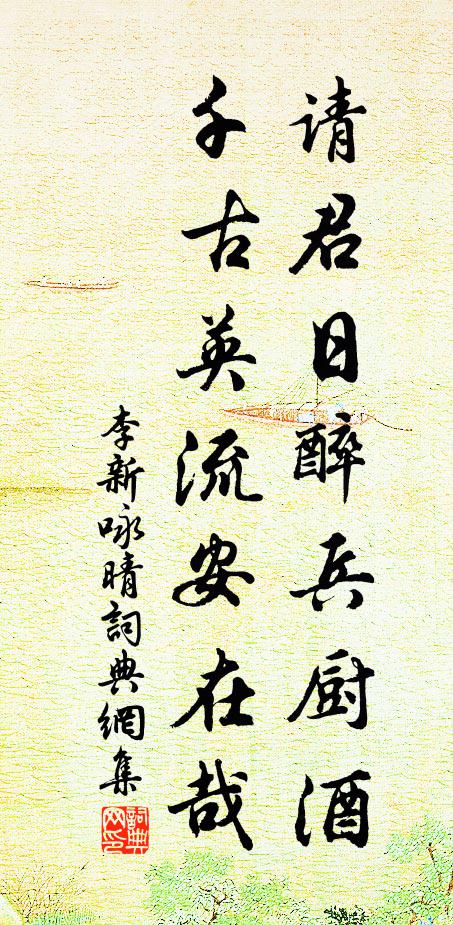 请君日醉兵厨酒
千古英流安在哉
李新咏晴詞典網集
詞典网印